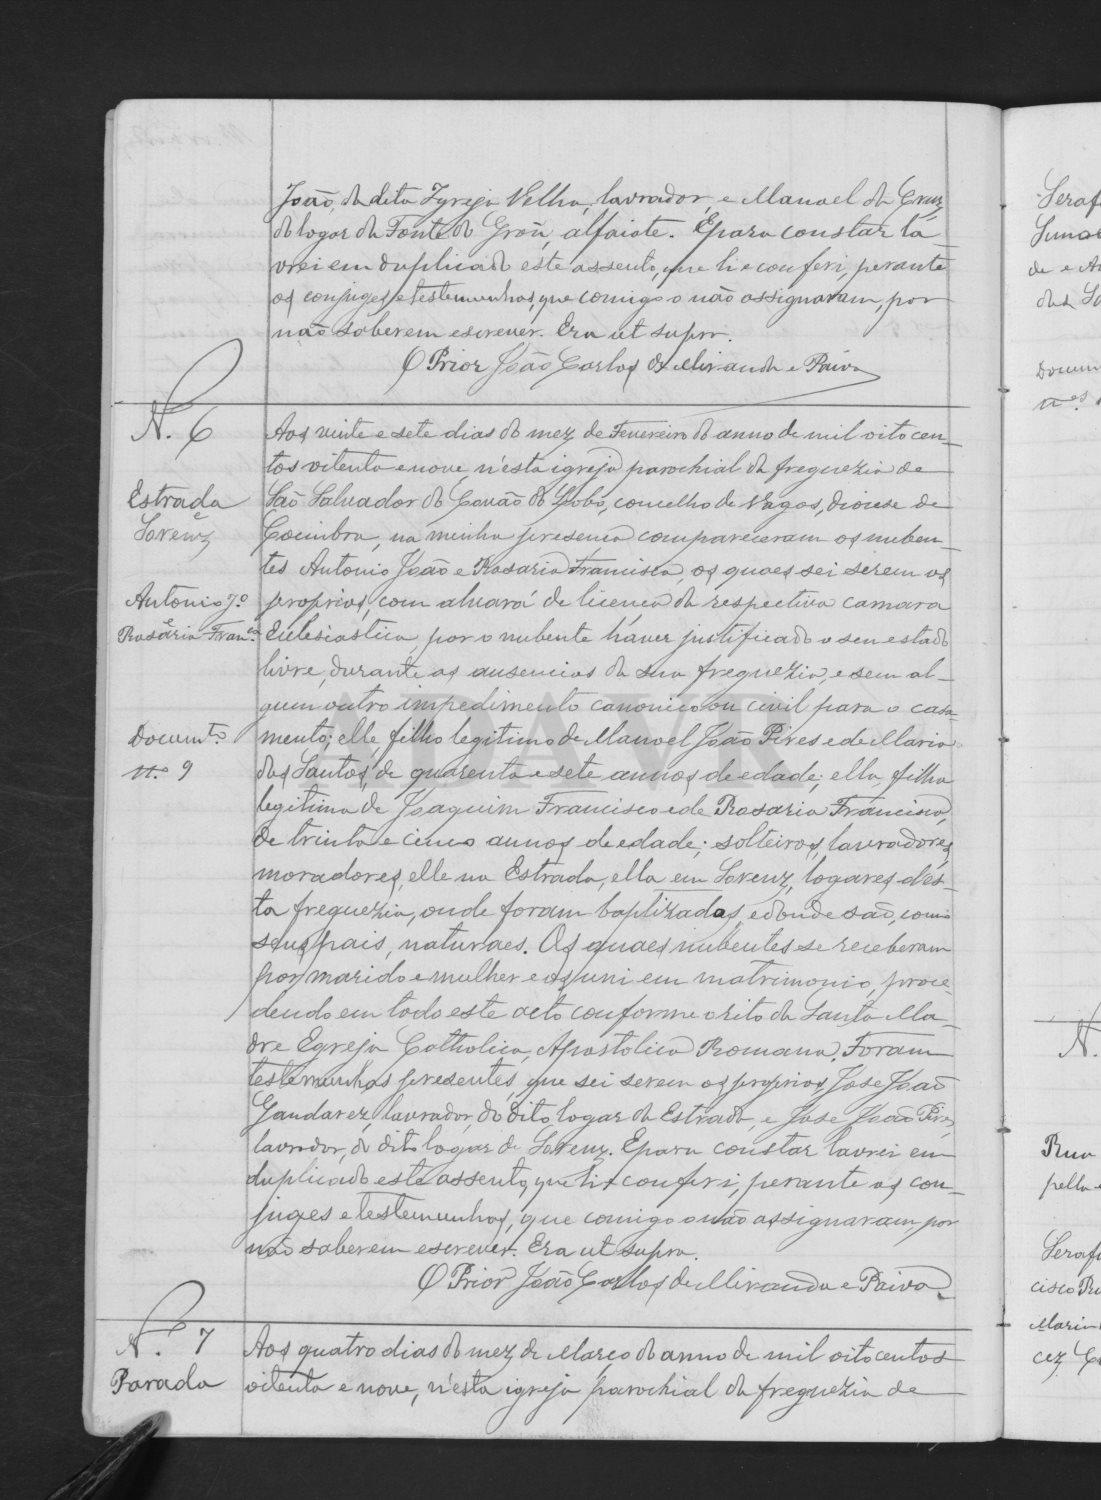 João, da dita Igreja Velha, lavrador, e Manoel da Cruz,
do logar da Fonte do Grou, alfaiate. E para constar la-
vrei em duplicado este assento, que li e conferi, perante
os conjuges e testemunhas, que comigo o não assignaram, por
não saberem escrever. Era ut supra.
O Prior João Carlos de Miranda e Paiva
N. 6
Estrada
e
Lorenz
Antonio Jº
e
Rosaria Franca
Documto
nº 9
Aos vinte e sete dias do mez de Fevereiro do anno de mil oito cen-
tos oitenta e nove, n'esta igreja parochial da freguezia de
São Salvador do Covão do Lobo, concelho de Vagos, diocese de
Coimbra, na minha presença compareceram os nuben-
tes Antonio João e Rosaria Francisca, os quaes sei serem os
proprios, com alvará de licença da respectiva camara
Ecclesiastica, por o nubente haver justificado o seu estado
livre, durante as ausencias da sua freguezia, e sem al-
gum outro impedimento canonico ou civil para o casa-
mento; elle filho legitimo de Manoel João Pires e de Maria
dos Santos, de quarenta e sete annos de edade; ella, filha
legitima de Joaquim Francisco e de Rosaria Francisca,
de trinta e cinco annos de edade; solteiros, lavradores,
moradores, elle na Estrada, ella em Lorenz, logares d'es-
ta freguezia, onde foram baptizados, e donde são, como
seus pais, naturaes. Os quaes nubentes se receberam
por marido e mulher e os uni em matrimonio, proce-
dendo em todo este acto conforme o rito da Santa Ma-
dre Egreja Catholica, Apostolica Romana. Foram
testemunhas presentes, que sei serem os proprios, Jose João
Gandarez, lavrador, do dito logar da Estrada, e Jose João Pires,
lavrador, do dito logar de Lorenz. E para constar lavrei em
duplicado este assento, que li e conferi, perante os con-
juges e testemunhas, que comigo o não assignaram, por
não saberem escrever. Era ut supra.
O Prior João Carlos de Miranda e Paiva
N. 7
Parada
Aos quatro dias do mez de Março do anno de mil oitocentos
oitenta e nove, n'esta igreja parochial da freguezia de
ADAVR
Seraf
de e
Docum
nos
N.
Rua
pella
Seraf
cisco
Maria
cez